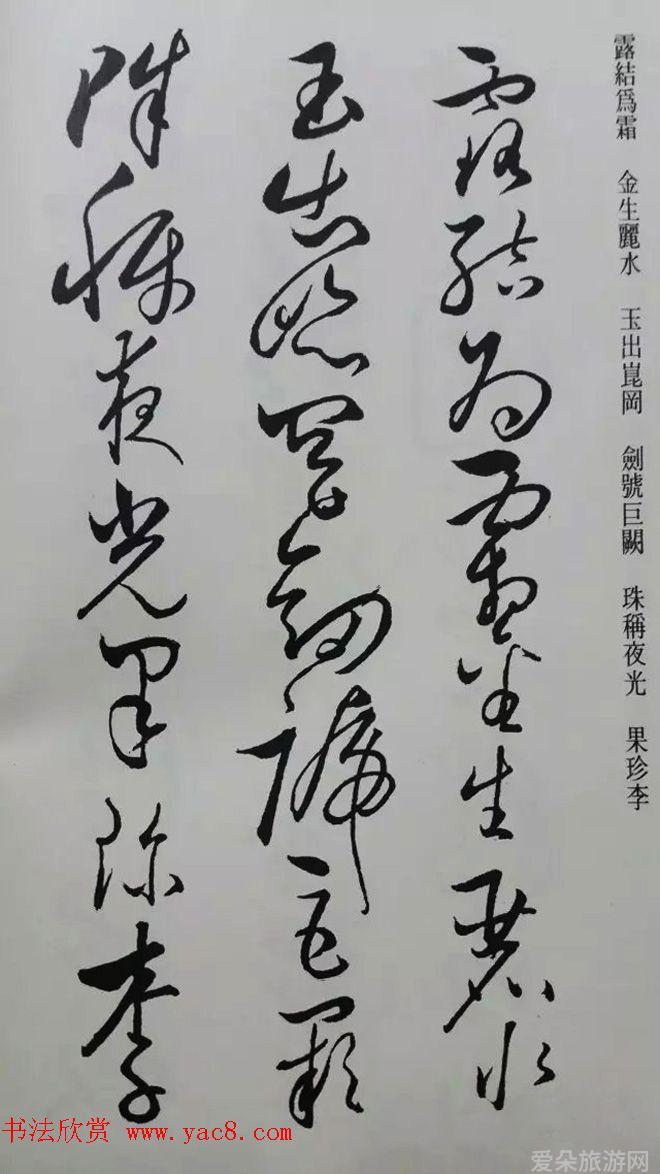 露結爲霜 金生麗水 玉出崑岡 劍號巨闕 珠稱夜光 果珍李
露結为霜金生麗水
玉出崑岡劍號巨闕
珠稱夜光果珍李
书法欣赏 www.yac8.com
爱朵旅游网